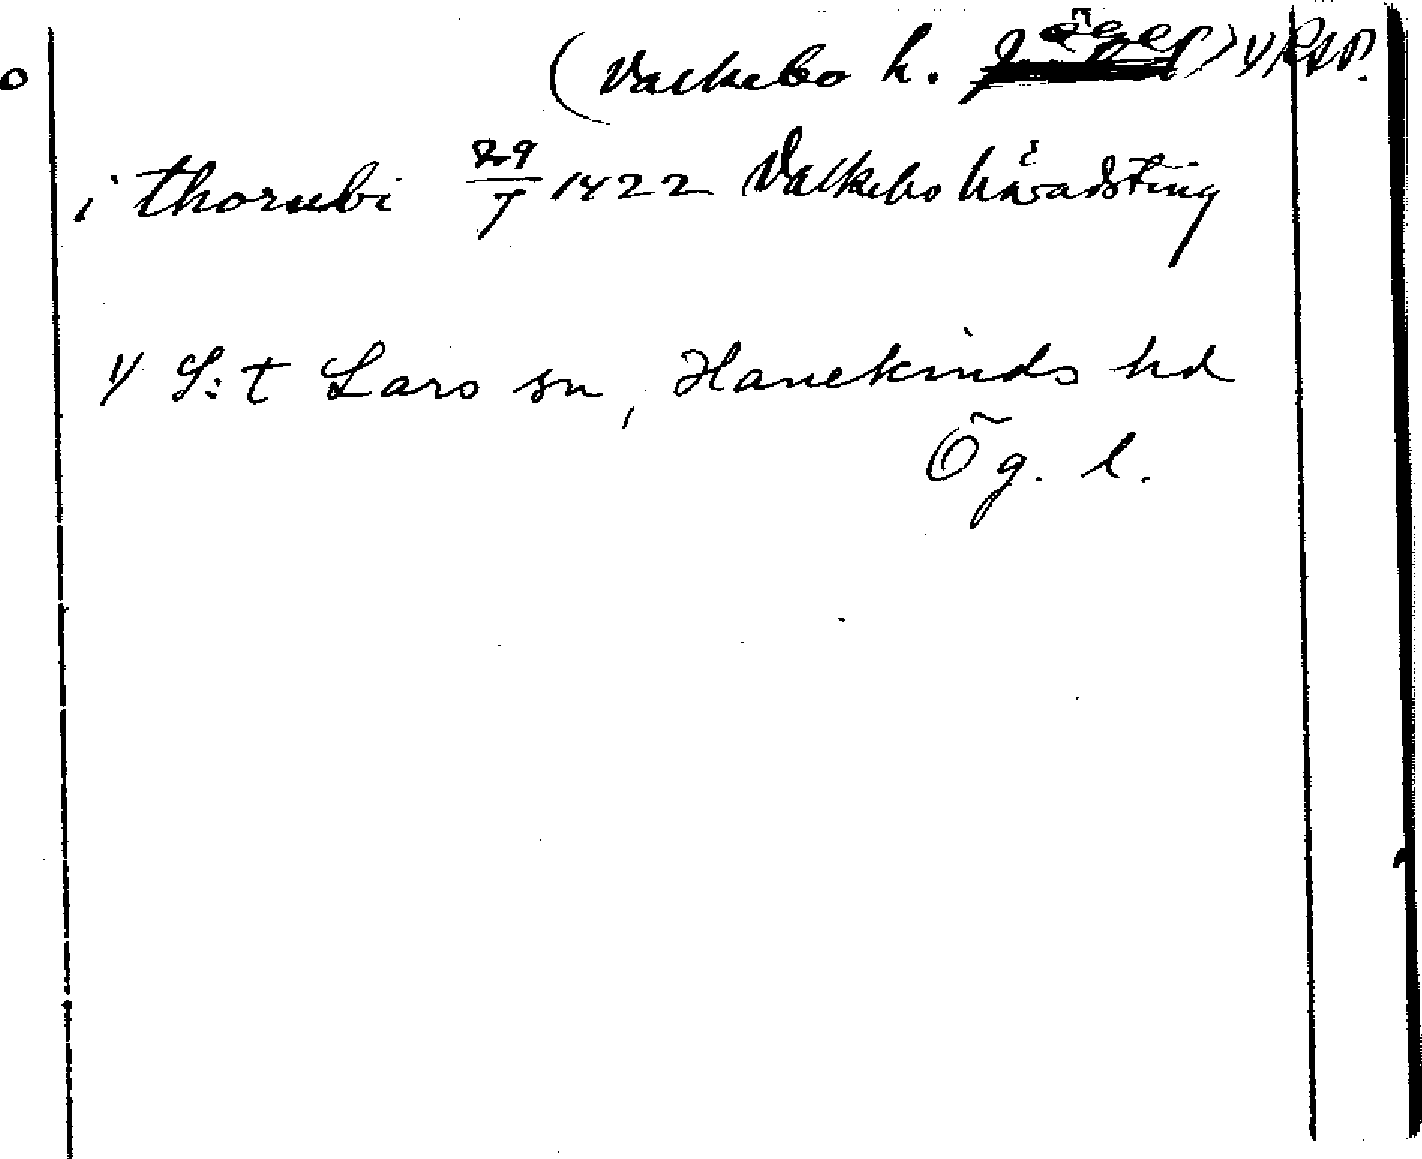 (Valkebo h. Ög.) 1/ RAP.
i thorubi 29/7 1422 Valkebo häradsting
1/ S:t Lars sn, Hanekinds hd
Ög. l.